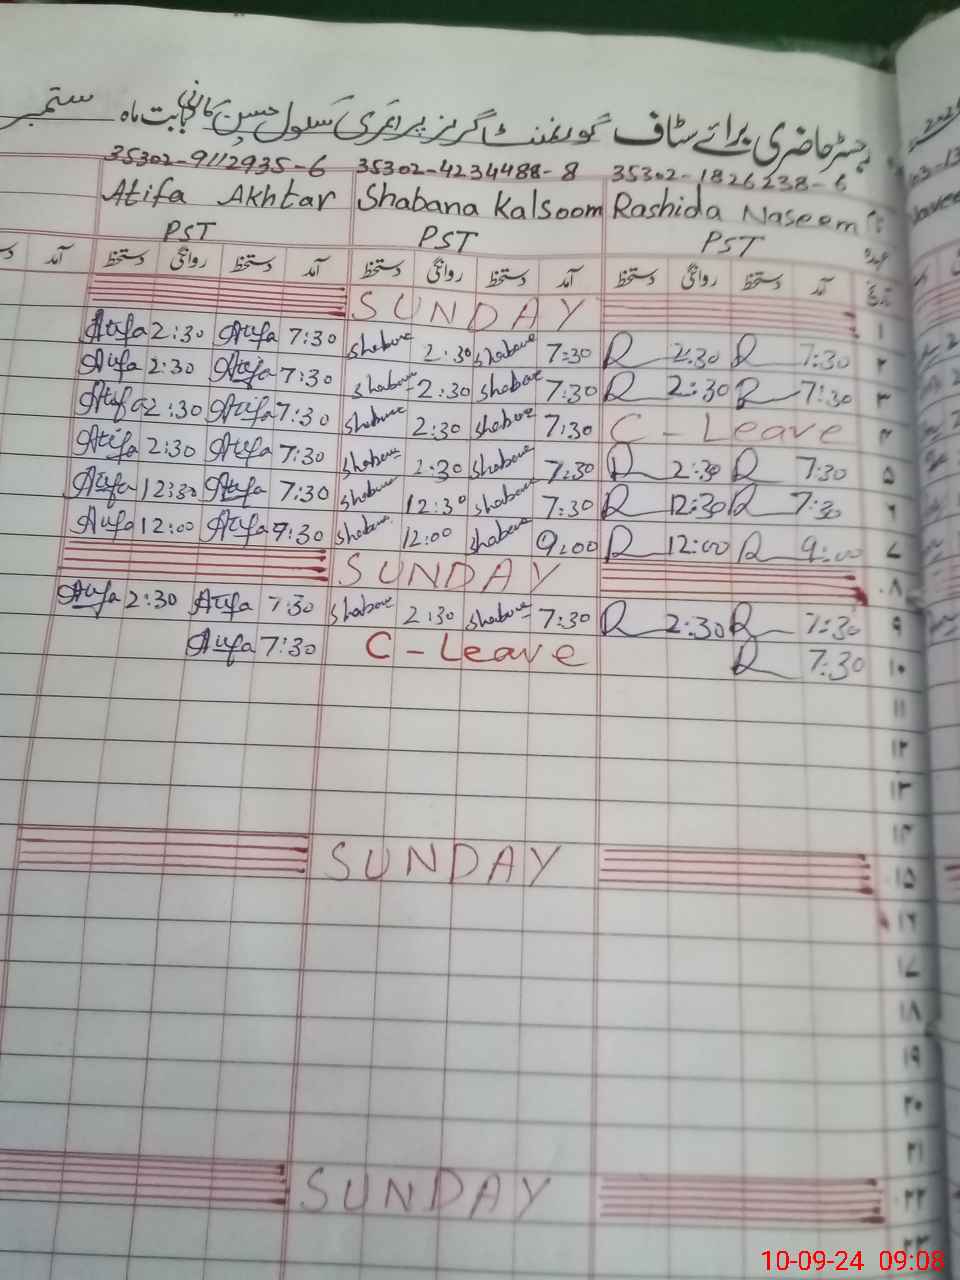 رجسٹر حاضری برائے سٹاف گورنمنٹ گرلز پرائمری سکول حسین کا بابت ماہ ستمبر
35302-9112935-6 35302-4234488-8 35302-1826238-6
Atifa Akhtar Shabana Kalsoom Rashida Naseem نام
PST PST PST عہدہ
آمد دستخط روانگی دستخط آمد دستخط روانگی دستخط آمد دستخط روانگی دستخط آمد تاریخ
SUNDAY ۱
Atifa 2:30 Atifa 7:30 Shabana 2:30 Shabana 7:30 R 2:30 R 7:30 ۲
Atifa 2:30 Atifa 7:30 Shabana 2:30 Shabana 7:30 R 2:30 R 7:30 ۳
Atifa 2:30 Atifa 7:30 Shabana 2:30 Shabana 7:30 C - Leave ۴
Atifa 2:30 Atifa 7:30 Shabana 2:30 Shabana 7:30 R 2:30 R 7:30 ۵
Atifa 12:30 Atifa 7:30 Shabana 12:30 Shabana 7:30 R 12:30 R 7:30 ۶
Atifa 12:00 Atifa 9:30 Shabana 12:00 Shabana 9:00 R 12:00 R 9:00 ۷
SUNDAY ۸
Atifa 2:30 Atifa 7:30 Shabana 2:30 Shabana 7:30 R 2:30 R 7:30 ۹
Atifa 7:30 C - Leave R 7:30 ۱۰
۱۱
۱۲
۱۳
۱۴
SUNDAY ۱۵
۱۶
۱۷
۱۸
۱۹
۲۰
۲۱
SUNDAY ۲۲
۲۳
10-09-24 09:08